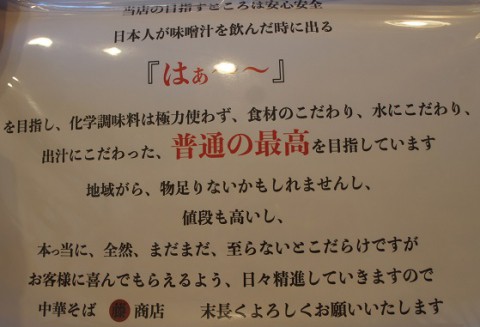 当店の目指すところは安心安全
日本人が味噌汁を飲んだ時に出る
『はぁ〜〜〜』
を目指し、化学調味料は極力使わず、食材のこだわり、水にこだわり、
出汁にこだわった、普通の最高を目指しています
地域がら、物足りないかもしれませんし、
値段も高いし、
本っ当に、全然、まだまだ、至らないとこだらけですが
お客様に喜んでもらえるよう、日々精進していきますので
中華そば 商店 末長くよろしくお願いいたします